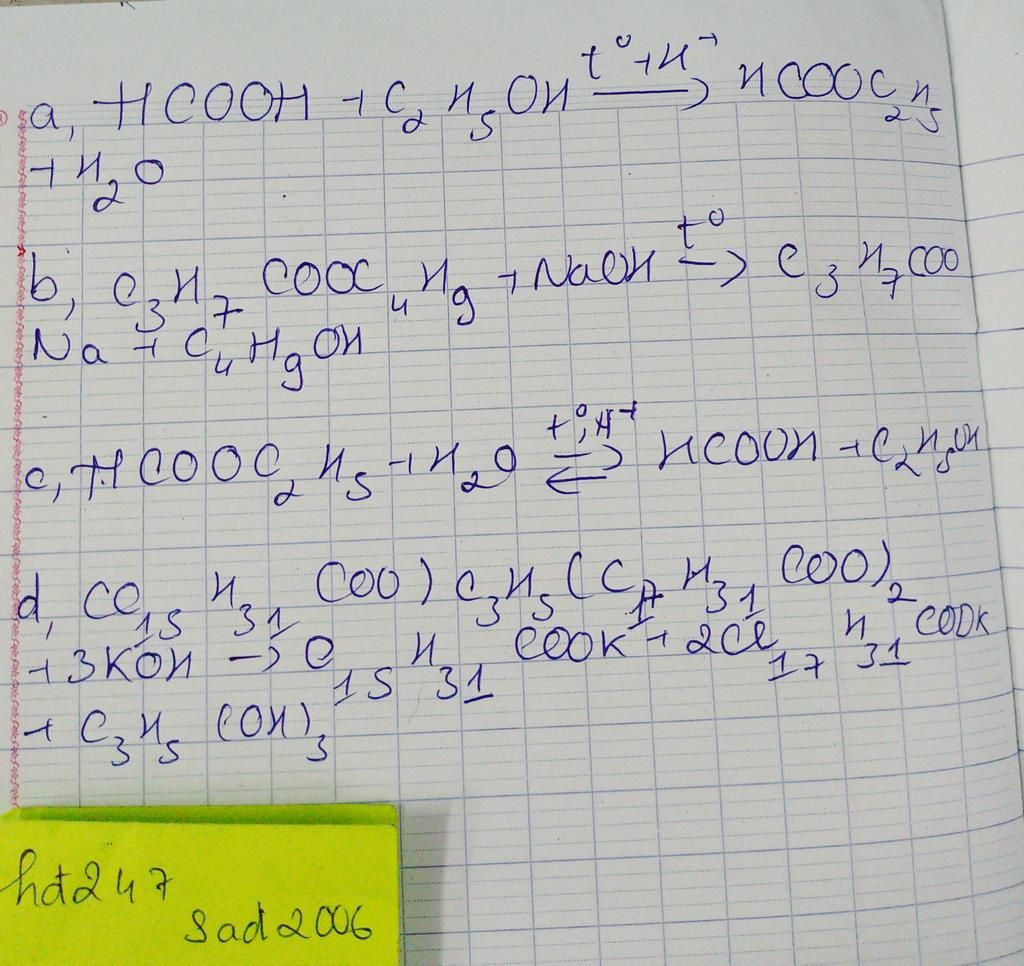 a, HCOOH + C₂H₅OH \xrightarrow{t⁰ + H⁺} HCOOC₂H₅
+ H₂O
b, C₃H₇COOC₄H₉ + NaOH \xrightarrow{t⁰} C₃H₇COO
Na + C₄H₉OH
c, HCOOC₂H₅ + H₂O \xrightleftharpoons{t⁰, H⁺} HCOOH + C₂H₅OH
d, (C₁₅H₃₁COO)C₃H₅(C₁₇H₃₁COO)₂
+ 3KOH → C₁₅H₃₁COOK + 2C₁₇H₃₁COOK
+ C₃H₅(OH)₃
hot247
Sad2006